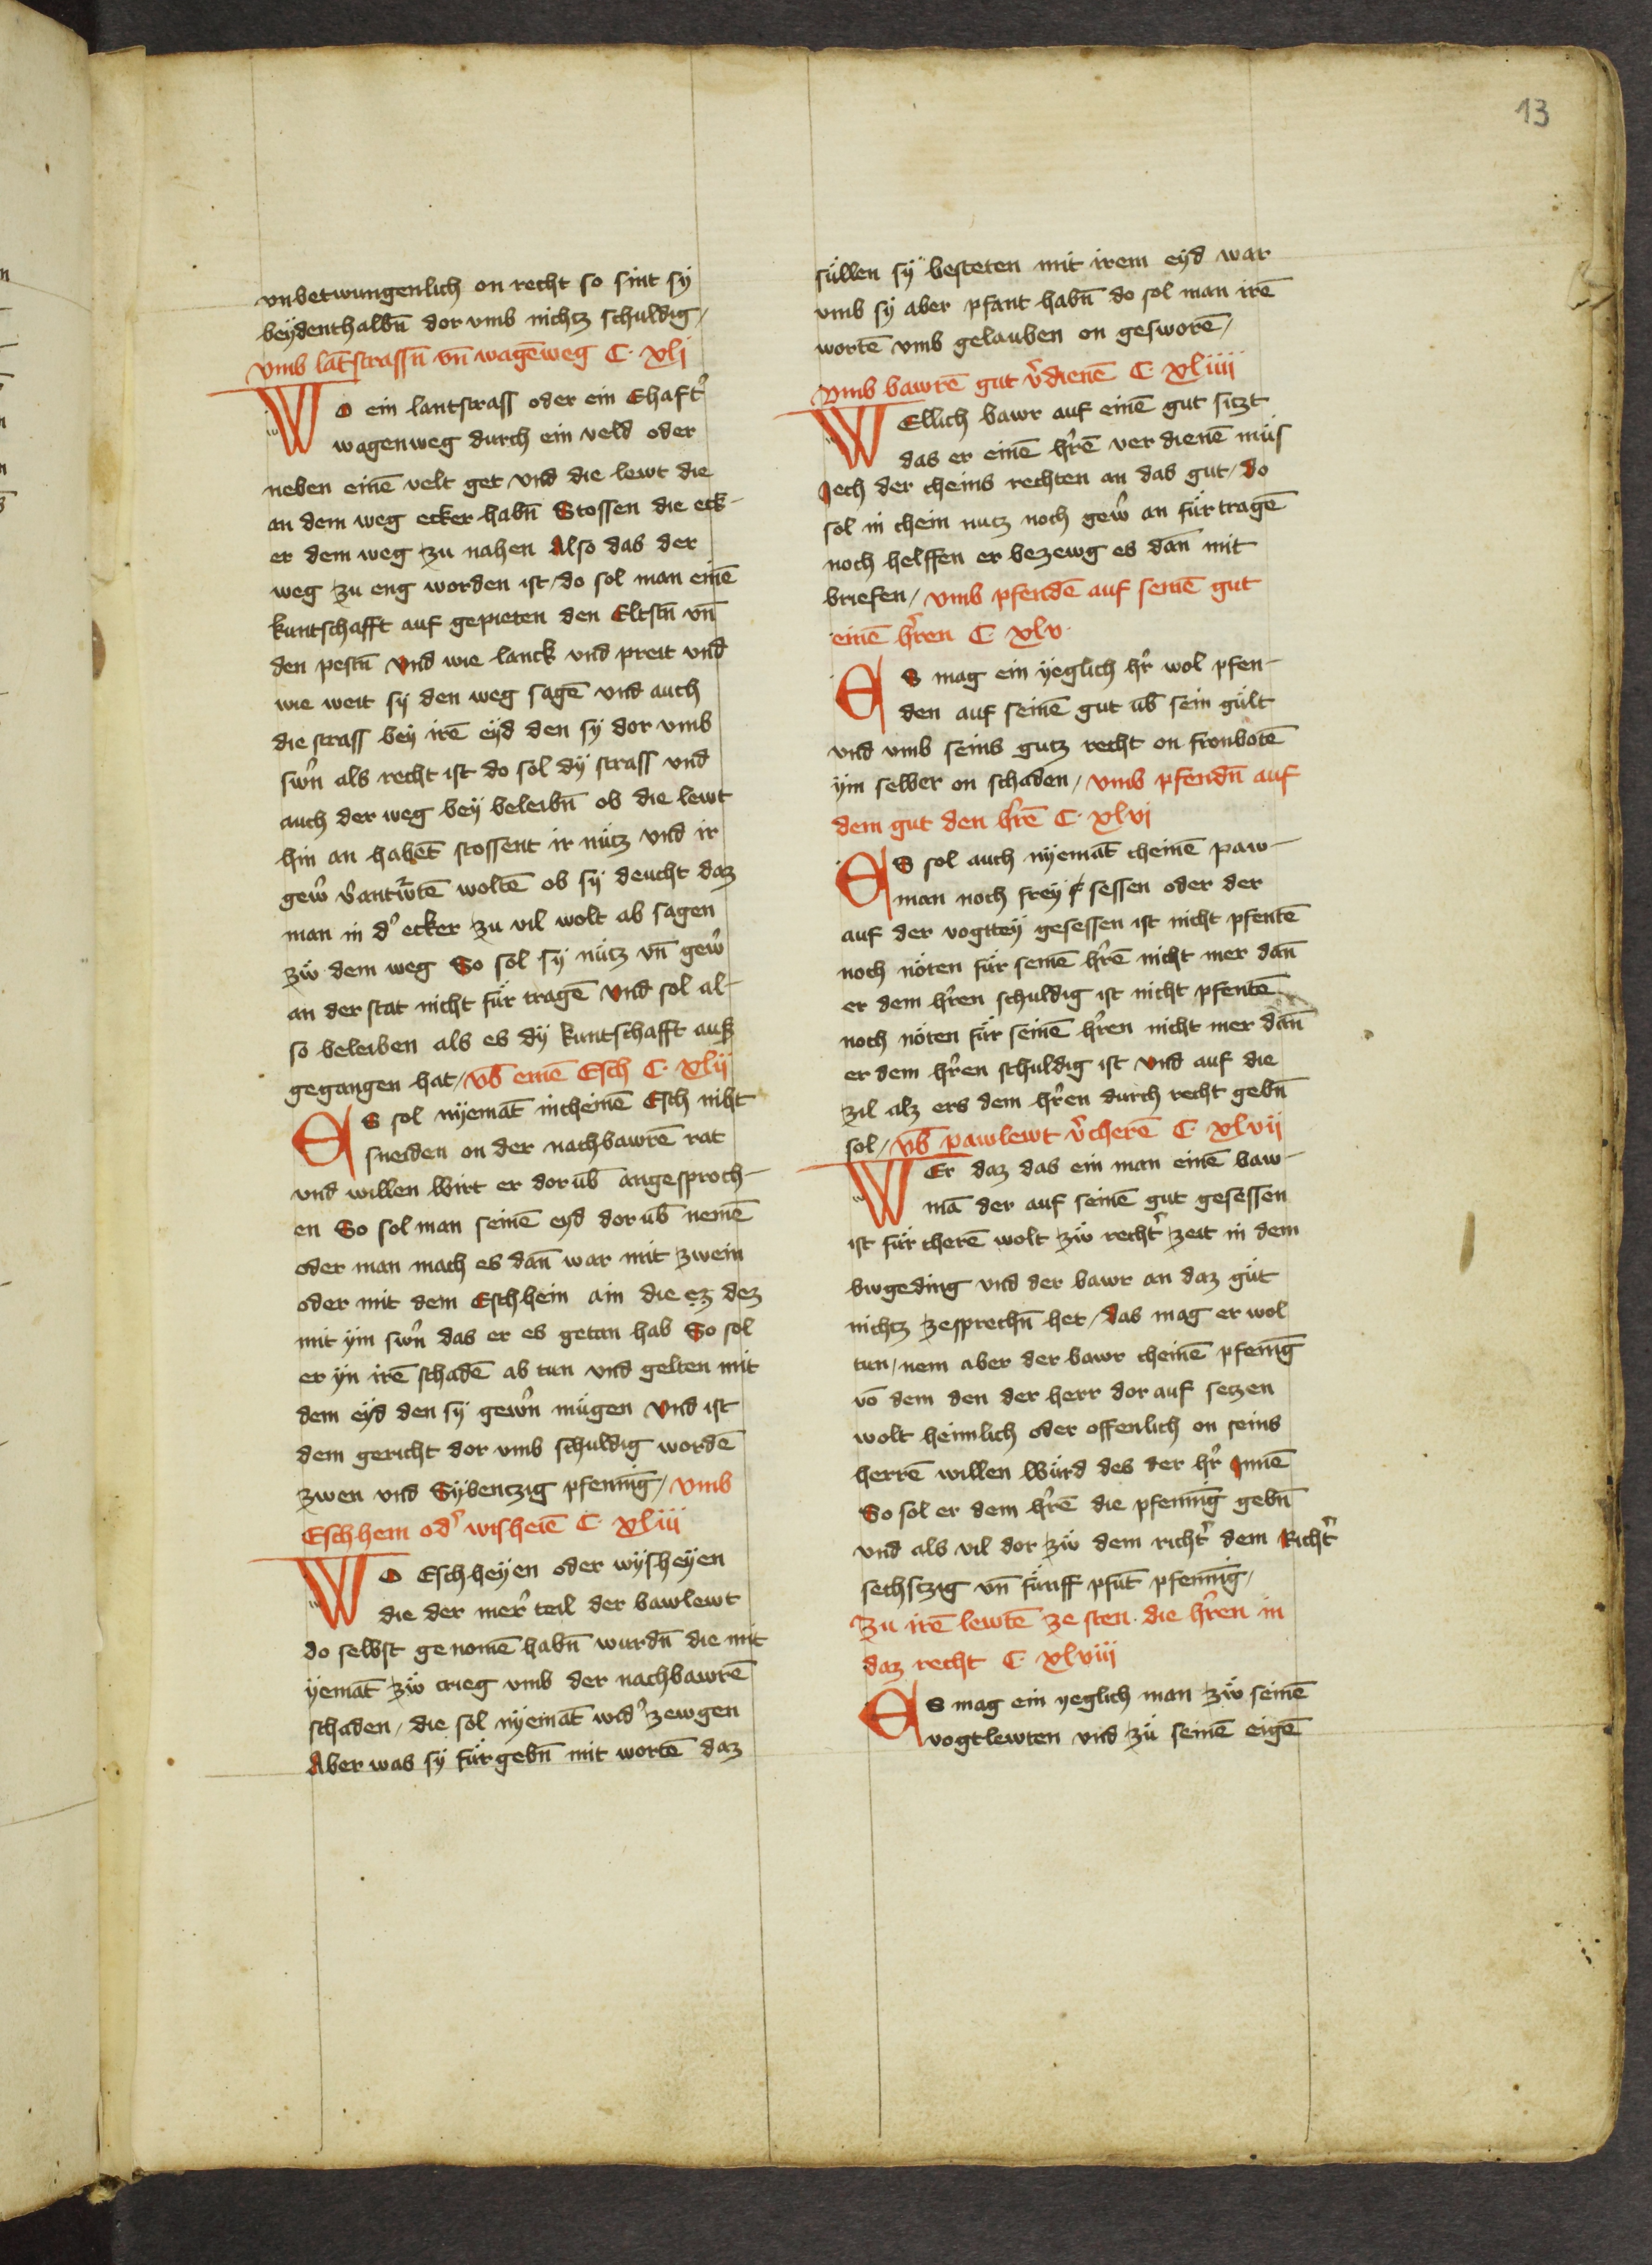 13
vnbetwungenlich on recht so sint sy
beydenthalbn̄ dor vmb nichtz schuldig /
vmb lāt strassn̄ vn̄ wagēweg C. xlj
WO ein lantstrass oder ein Ehaftˀ
wagenweg durch ein veld oder
neben einē velt get vnd die lewt die
an dem weg ecker habn̄ Stossen die eck-
er dem weg zu nahen Also das der
weg zu eng worden ist / do sol man einē
kuntschafft auf gepieten den Eltstn̄ vn̄
den pestn̄ Vnd wie lanck vnd preit vnd
wie weit sy den weg sagē vnd auch
die strass bey irē eyd den sy dor vmb
swˀn als recht ist do sol dy strass vnd
auch der weg bey beleibn̄ ob die lewt
hin an habēt stossent ir nütz vnd ir
gewˀ vˀantwˀtē woltē ob sy deucht daz
man in dˀ ecker zu vil wolt ab sagen
zů dem weg So sol sy nütz vn̄ gewˀ
an der stat nicht für tragē Vnd sol al-
so beleiben als es dy kuntschafft auß
gegangen hat / vb̄ einē Esch C. xlij
ES sol nyemāt in cheinē Esch niht
sneiden on der nachbawrē rat
vnd willen Wirt er dorūb angesproch-
en So sol man seinē eyd dor ūb nemē
oder man mach es dan̄ war mit zwein
oder mit dem Eschhein ain die ez dez
mit ym swˀn das er es getan hab So sol
er yn irē schadē ab tun vnd gelten mit
dem eyd den sy gewˀn mügen Vnd ist
dem gericht dor vmb schuldig wordē
zwen vnd Sybentzig pfennīg / vmb
Eschhem odˀ wisheiē C. xliij
WO Eschheyen oder wysheyen
die der merˀ teil der bawlewt
do selbst ge nomē habn̄ wurdn̄ die mit
yemāt zů crieg vmb der nachbawrē
schaden / die sol nyemāt widˀ zewgen
Aber was sy für gebn̄ mit wortē daz
süllen sy besteten mit irem eyd war
vmb sy aber pfant habn̄ do sol man irē
wortē vmb gelauben on gesworē /
vmb bawrē gut vˀdienē C. xliiij
WEllich bawr auf einē gut sitzt
das er einē hˀrē ver dienē müs
Iech der cheins rechten an das gut / do
sol in chein nutz noch gewˀ an für tragē
noch helffen er bezewg es dan̄ mit
briefen / vmb pfendē auf seinē gut
einē hˀren C. xlv.
ES mag ein yeglich hˀr wol pfen-
den auf seinē gut ūb sein gült
vnd vmb seins gutz recht on fronbotē
ym selber on schaden / vmb pfendn̄ auf
dem gut den hˀrē C. xlvi
ES sol auch nyemāt cheinē paw-
man noch frey sessen oder der
auf der vogttey gesessen ist nicht pfentē
noch nöten für seinē hˀrē nicht mer dan̄
er dem hˀren schuldig ist nicht pfentē
noch nöten für seinē hˀren nicht mer dan̄
er dem hˀren schuldig ist Vnd auf die
zil alz ers dem hˀren durch recht gebn̄
sol / vb̄ pawlewt vˀcherē C. xlvij
WEr daz das ein man einē baw-
mā der auf seinē gut gesessen
ist für cherē wolt zů rechtˀ zeit in dem
bwgeding vnd der bawr an daz güt
nichtz zesprechn̄ het / das mag er wol
tun / nem aber der bawr cheinē pfenīg
vō dem den der herr dor auf setzen
wolt heimlich oder offenlich on seins
herrē willen Würd des der hˀr Innē
So sol er dem hˀrē die pfennīg gebn̄
vnd als vil dor zů dem richtˀ dem Richtˀ
sechstzig vn̄ fünff pfūt pfennīg /
Zu irē lewtē ze sten. die hˀren in
daz recht C. xlviij
ES mag ein yeglich man zů seinē
vogtlewten vnd zů seinē eigē